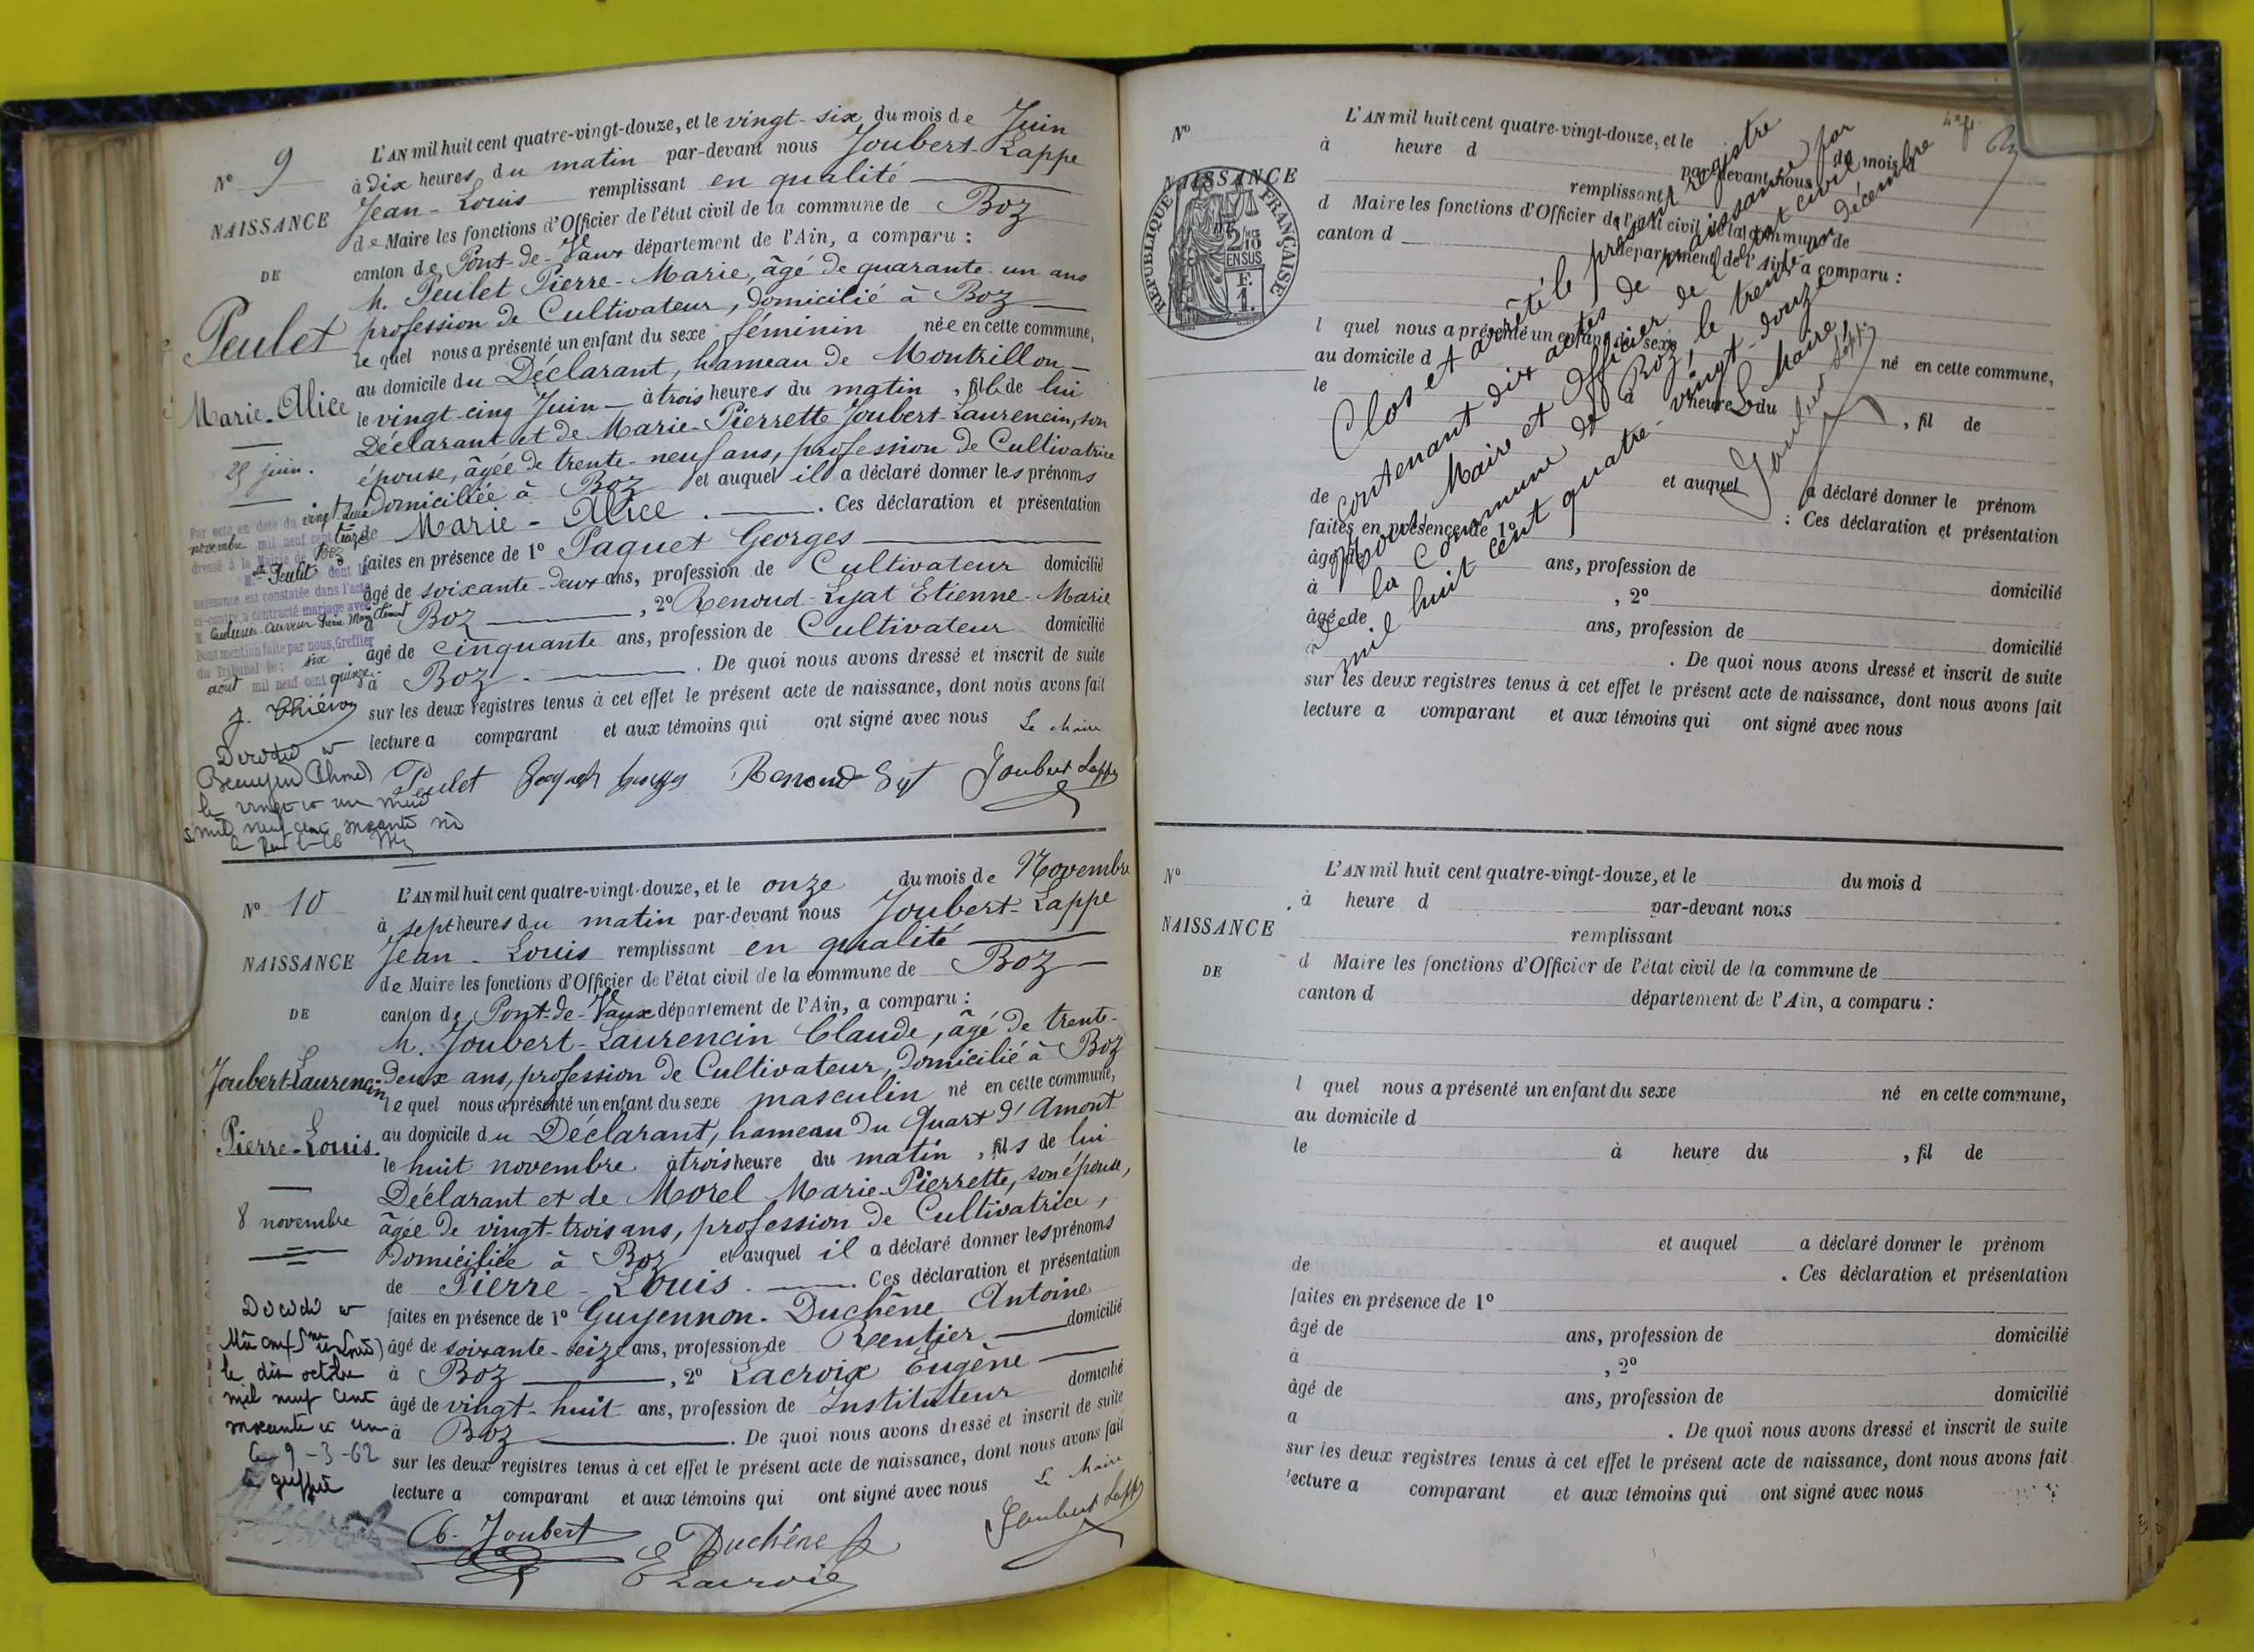 N° 9
NAISSANCE
DE
Peulet
Marie-Alice
25 juin.
L'AN mil huit cent quatre-vingt-douze, et le vingt-six du mois de Juin
à dix heures du matin par-devant nous Joubert-Lappe
Jean-Louis remplissant en qualité
de Maire les fonctions d'Officier de l'état civil de la commune de Boz
canton de Pont-de-Vaux département de l'Ain, a comparu :
M. Peulet Pierre-Marie, âgé de quarante-un ans
profession de Cultivateur, domicilié à Boz
le quel nous a présenté un enfant du sexe féminin née en cette commune,
au domicile du Déclarant, hameau de Montrillon
le vingt-cinq Juin à trois heures du matin, fille de lui
Déclarant et de Marie-Pierrette Joubert-Laurencin, son
épouse, âgée de trente-neuf ans, profession de Cultivatrice
domiciliée à Boz et auquel il a déclaré donner les prénoms
de Marie-Alice. Ces déclaration et présentation
faites en présence de 1° Paquet Georges
âgé de soixante-deux ans, profession de Cultivateur domicilié
à Boz, 2° Renoud-Lyat Etienne-Marie
âgé de cinquante ans, profession de Cultivateur domicilié
à Boz. De quoi nous avons dressé et inscrit de suite
sur les deux registres tenus à cet effet le présent acte de naissance, dont nous avons fait
lecture a comparant et aux témoins qui ont signé avec nous Le Maire
Peulet Renoud Joubert Lappe
Par acte en date du vingt deux
novembre mil neuf cent treize
dressé à la Mairie de Boz
Mlle Peulet dont la
naissance est constatée dans l'acte
ci-contre, a contracté mariage avec
Dont mention faite par nous, Greffier
du Tribunal le : six
août mil neuf cent quinze
N° 10
NAISSANCE
DE
Joubert-Laurencin
Pierre-Louis.
8 novembre
L'AN mil huit cent quatre-vingt-douze, et le onze du mois de Novembre
à sept heures du matin par-devant nous Joubert-Lappe
Jean-Louis remplissant en qualité
de Maire les fonctions d'Officier de l'état civil de la commune de Boz
canton de Pont-de-Vaux département de l'Ain, a comparu :
M. Joubert-Laurencin Claude, âgé de trente-
deux ans, profession de Cultivateur, domicilié à Boz
le quel nous a présenté un enfant du sexe masculin né en cette commune,
au domicile du Déclarant, hameau du Quart d'Amont
le huit novembre à trois heure du matin, fils de lui
Déclarant et de Morel Marie-Pierrette, son épouse,
âgée de vingt-trois ans, profession de Cultivatrice,
domiciliée à Boz et auquel il a déclaré donner les prénoms
de Pierre-Louis. Ces déclaration et présentation
faites en présence de 1° Guyennon-Duchêne Antoine
âgé de soixante-seize ans, profession de Rentier domicilié
à Boz, 2° Lacroix Eugène
âgé de vingt-huit ans, profession de Instituteur domicilié
à Boz. De quoi nous avons dressé et inscrit de suite
sur les deux registres tenus à cet effet le présent acte de naissance, dont nous avons fait
lecture a comparant et aux témoins qui ont signé avec nous Le Maire
Joubert Duchêne Joubert Lappe
E Lacroix
le dix octobre
mil neuf cent
soixante et un
Le 9-3-62
N°
NAISSANCE
DE
RÉPUBLIQUE FRANÇAISE
2/10 EN SUS
F.
1.
L'AN mil huit cent quatre-vingt-douze, et le du mois d
à heure d par-devant nous
remplissant
d Maire les fonctions d'Officier de l'état civil de la commune de
canton d département de l'Ain, a comparu :
l quel nous a présenté un enfant du sexe né en cette commune,
au domicile d
le à heure du , fil de
et auquel a déclaré donner le prénom
de : Ces déclaration et présentation
faites en présence de 1°
âgé de ans, profession de domicilié
à , 2°
âgé de ans, profession de domicilié
à . De quoi nous avons dressé et inscrit de suite
sur les deux registres tenus à cet effet le présent acte de naissance, dont nous avons fait
lecture a comparant et aux témoins qui ont signé avec nous
Clos et arrêté le présent registre
contenant dix actes de naissance par
Nous, Maire et Officier de l'état civil
de la Commune de Boz, le trente un décembre
mil huit cent quatre-vingt-douze
Le Maire
Joubert Lappe
N°
NAISSANCE
DE
L'AN mil huit cent quatre-vingt-douze, et le du mois d
à heure d par-devant nous
remplissant
d Maire les fonctions d'Officier de l'état civil de la commune de
canton d département de l'Ain, a comparu :
l quel nous a présenté un enfant du sexe né en cette commune,
au domicile d
le à heure du , fil de
et auquel a déclaré donner le prénom
de . Ces déclaration et présentation
faites en présence de 1°
âgé de ans, profession de domicilié
à , 2°
âgé de ans, profession de domicilié
a . De quoi nous avons dressé et inscrit de suite
sur les deux registres tenus à cet effet le présent acte de naissance, dont nous avons fait
lecture a comparant et aux témoins qui ont signé avec nous